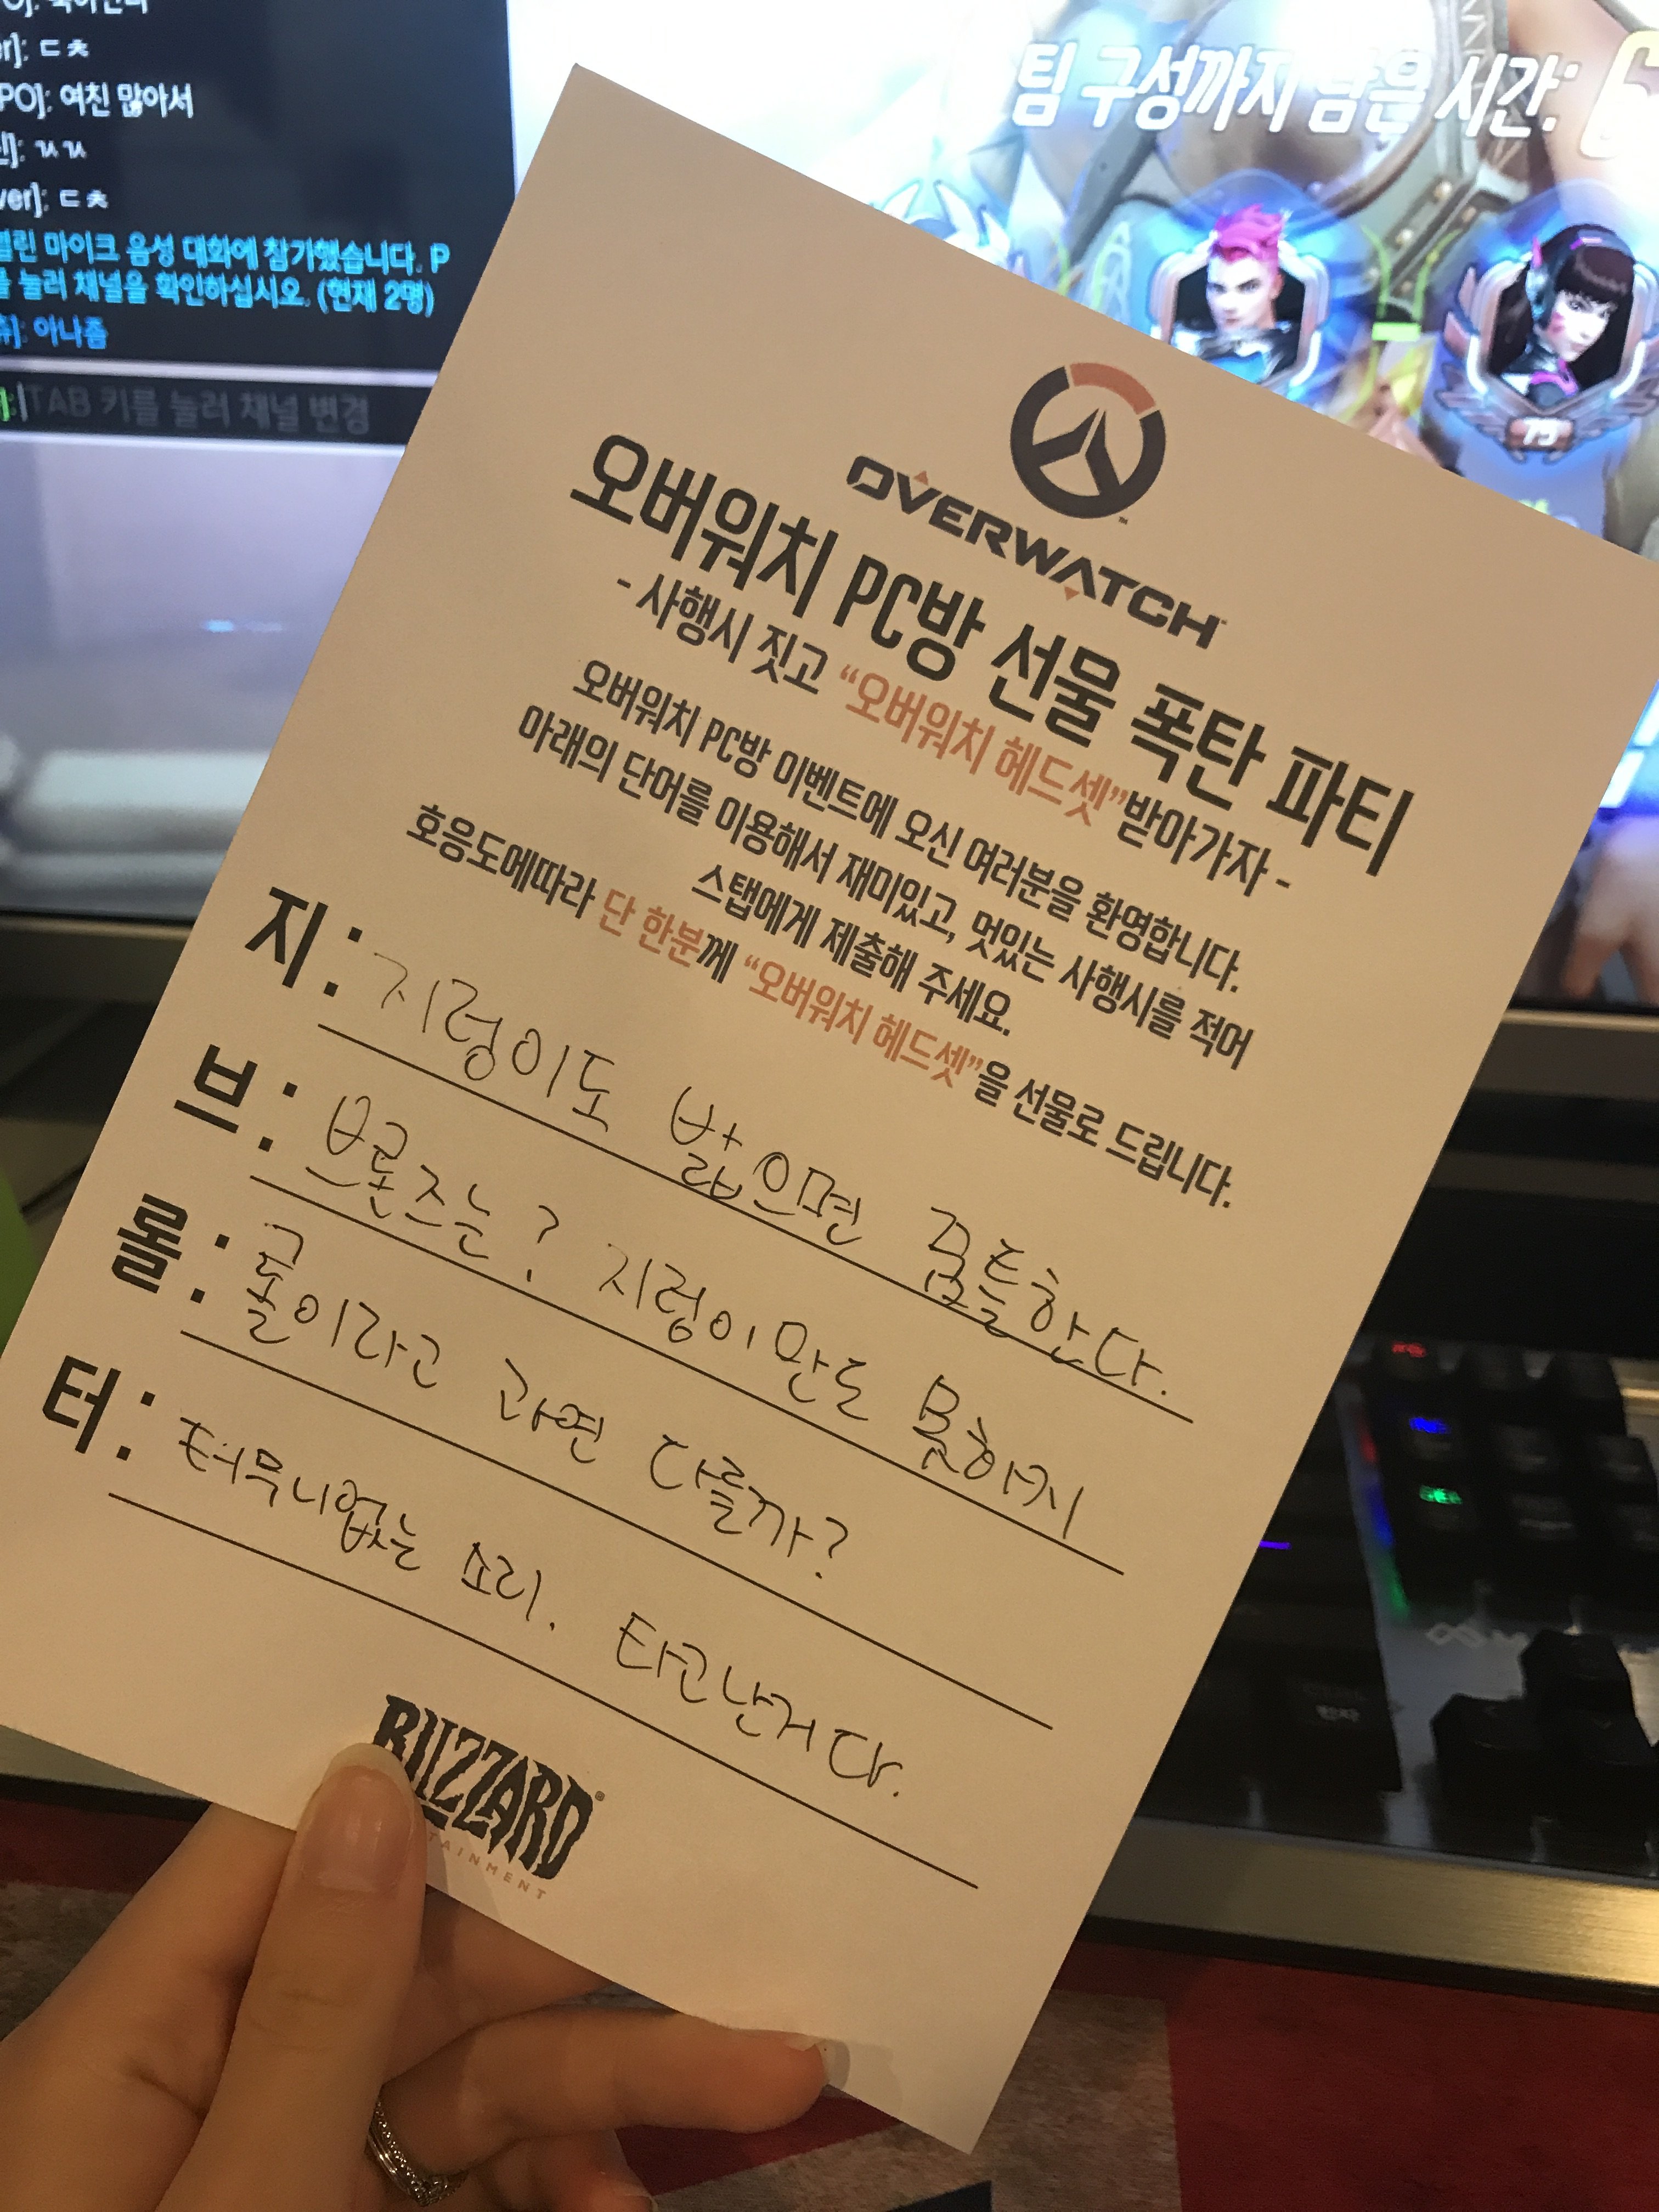 ㄷㅊ
여친 많아서
ㄴㄴ
ㄷㅊ
마이크 음성 대화에 참가했습니다. P
눌러 채널을 확인하십시오. (현재 2명)
아나좀
TAB 키를 눌러 채널 변경
팀 구성까지 남은 시간:
75
OVERWATCH
오버워치 PC방 선물 폭탄 파티
- 사행시 짓고 “오버워치 헤드셋”받아가자 -
오버워치 PC방 이벤트에 오신 여러분을 환영합니다.
아래의 단어를 이용해서 재미있고, 멋있는 사행시를 적어
스탭에게 제출해 주세요.
호응도에따라 단 한분께 “오버워치 헤드셋”을 선물로 드립니다.
지 : 지렁이도 밟으면 꿈틀한다.
브 : 브론즈는? 지렁이만도 못하지
롤 : 롤이라고 과연 다를까?
터 : 터무니없는 소리. 타고난거다.
BLIZZARD
TAINMENT